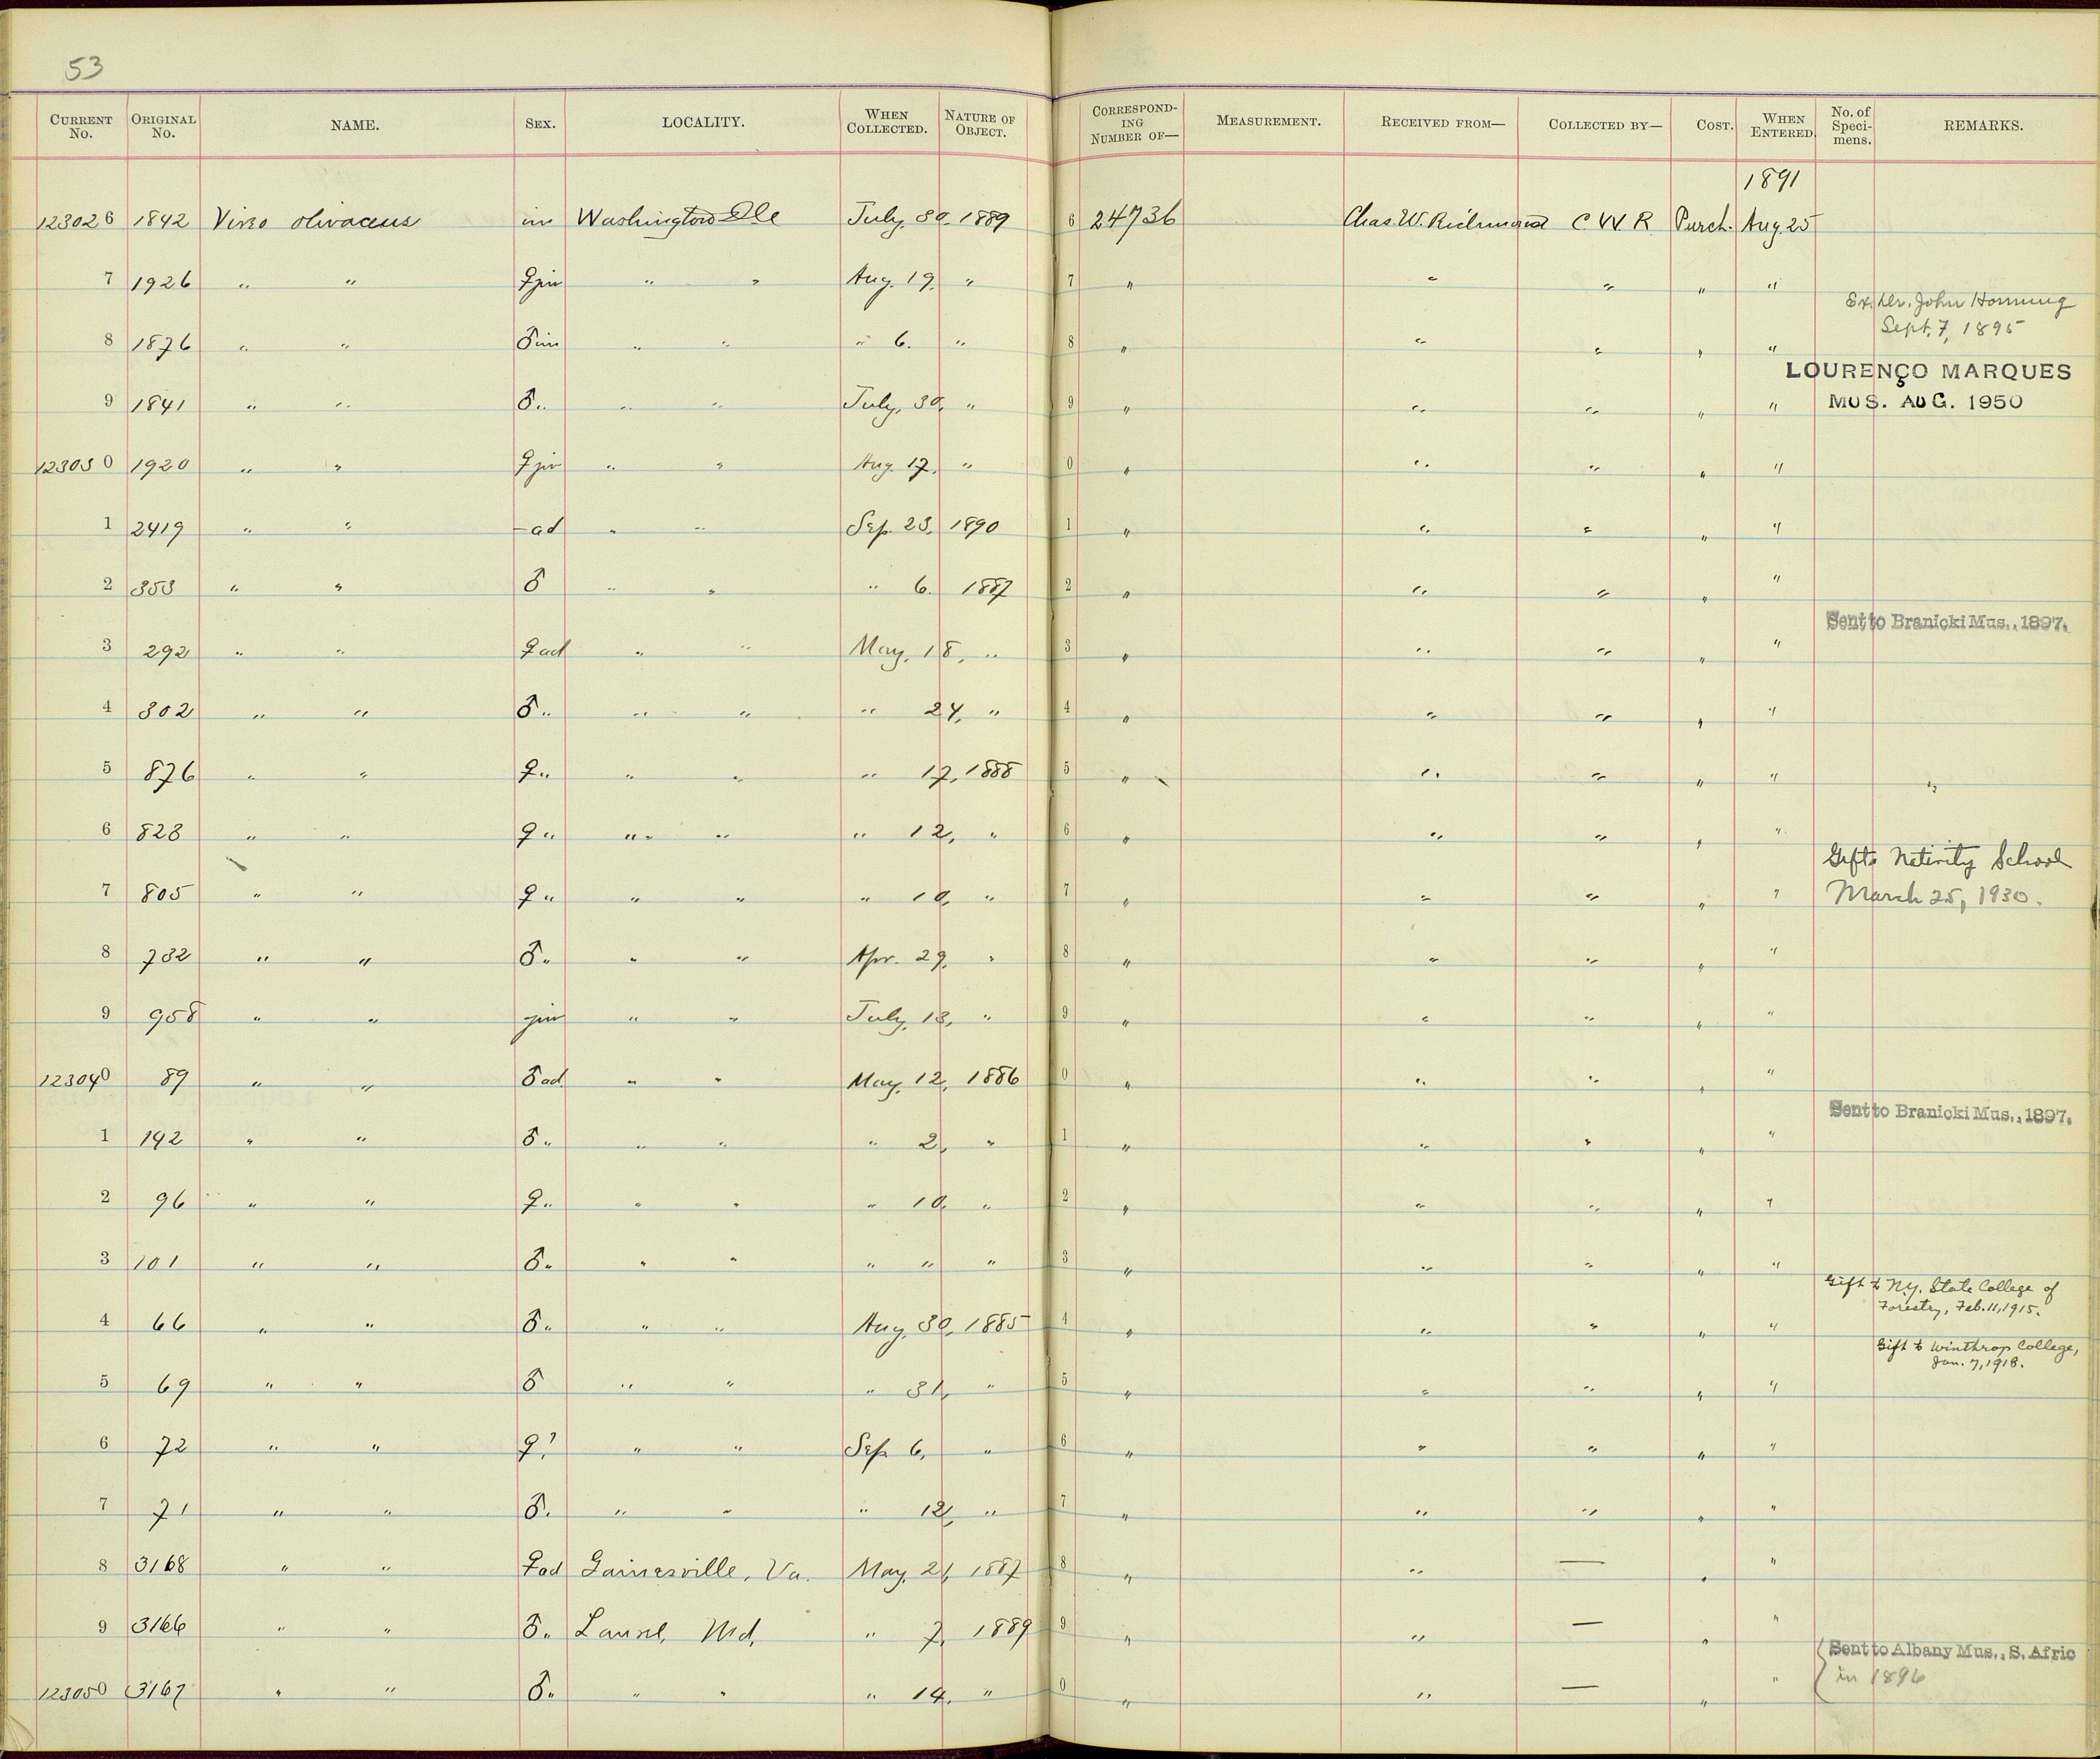 53
CURRENT No. ORIGINAL No. NAME. SEX. LOCALITY. WHEN COLLECTED. NATURE OF OBJECT. CORRESPONDING NUMBER OF— MEASUREMENT. RECEIVED FROM— COLLECTED BY— COST. WHEN ENTERED. No. of Specimens. REMARKS.
1891
123026 1842 Vireo olivaceus im Washington D.C. July, 30, 1889 6 24736 Chas. W. Richmond C W R Purch. Aug. 25
7 1926 " " ♀ juv " " Aug. 19, " 7 " " " " "
Ex. Dr. John Hornung
Sept. 7, 1895
8 1876 " " ♂ im " " " 6. " 8 " " " " "
LOURENÇO MARQUES
9 1841 " " ♂ " " " July, 30, " 9 " " " " " MUS. AUG. 1950
123030 1920 " " ♀ juv " " Aug. 17, " 0 " " " " "
1 2419 " " - ad " " Sep. 23, 1890 1 " " " " "
2 353 " " ♂ " " " 6. 1887 2 " " " " "
Sent to Branicki Mus., 1897.
3 292 " " ♀ ad " " May, 18, " 3 " " " " "
4 302 " " ♂ " " " " 24, " 4 " " " " "
5 876 " " ♀ " " " " 17, 1888 5 " " " " " "
6 828 " " ♀ " " " " 12, " 6 " " " " "
Gift to Nativity School
7 805 " " ♀ " " " " 10, " 7 " " " " " March 25, 1930.
8 732 " " ♂ " " " Apr. 29, " 8 " " " " "
9 958 " " - juv " " July, 13, " 9 " " " " "
123040 89 " " ♂ ad. " " May, 12, 1886 0 " " " " "
Sent to Branicki Mus., 1897.
1 142 " " ♂ " " " " 2, " 1 " " " " "
2 96 " " ♀ " " " " 10, " 2 " " " " "
3 101 " " ♂ " " " " " " 3 " " " " "
Gift to N.Y. State College of
Forestry, Feb. 11, 1915.
4 66 " " ♂ " " " Aug, 30, 1885 4 " " " " "
Gift to Winthrop College,
Jan. 7, 1918.
5 69 " " ♂ " " " 31, " 5 " " " " "
6 72 " " ♀? " " Sep. 6, " 6 " " " " "
7 71 " " ♂ " " " " 12, " 7 " " " " "
8 3168 " " ♀ ad Gainesville, Va. May, 21, 1887 8 " " — " "
9 3166 " " ♂ " Laurel, Md, " 7, 1889 9 " " — " "
Sent to Albany Mus., S. Afric
in 1896
123050 3167 " " ♂ " " " " 14, " 0 " " — " "